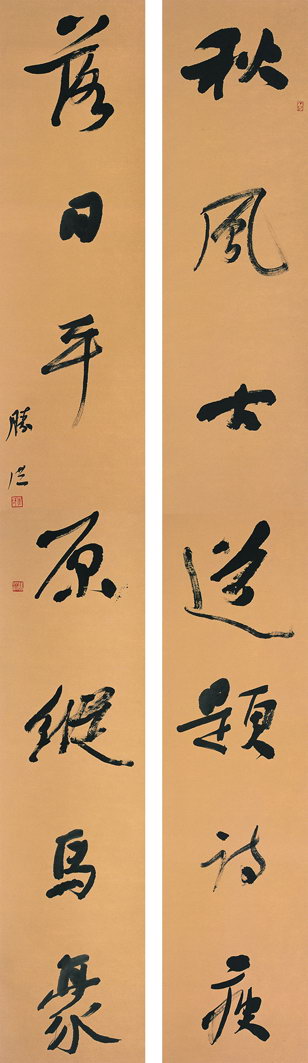 秋風古道題詩瘦
落日平原縱馬豪
勝洪